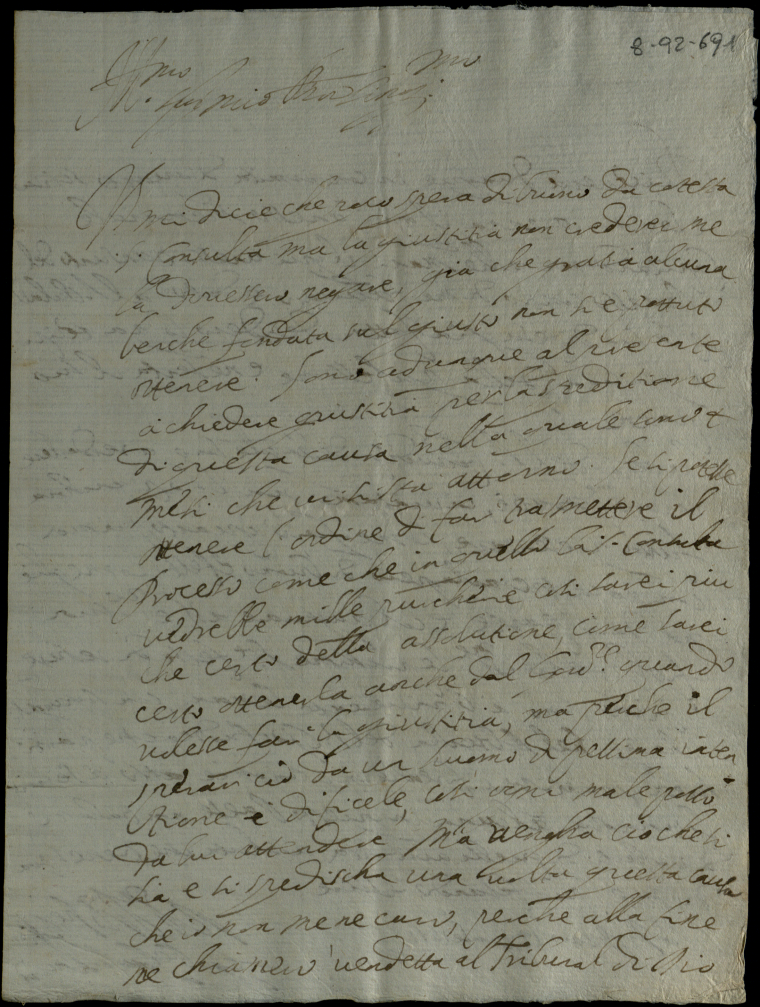 8-92-691
Ill.mo
V. mi dicie che poco spera di buono da cotesta
S. Consulta ma la giustitia non crederei me
la dovessero negare, gia che gratia alcuna
benche fondata sul giusto non si è potuto
ottenere. Sono adunque al presente
a chiedere giustitia per la speditione
di questa causa nella quale sono
mesi che vi si sta attorno. Se si potesse
ottenere l'ordine di far trasmettere il
Processo come che in quello la S. Consulta
vedrebbe mille così sarei piu
che certo della assolutione, come sarei
certo ottenerla anche dal Gov.re quando
volesse far la giustitia, ma perche il
sperar ciò da un huomo di pessima inten
tione è dificele, così ogni male posso
da lui attendere. Ma vengha cio che si
sia e si spedischa una volta questa causa
che io non me ne curo, perche alla fine
ne chiamero vendetta al Tribunal di Dio